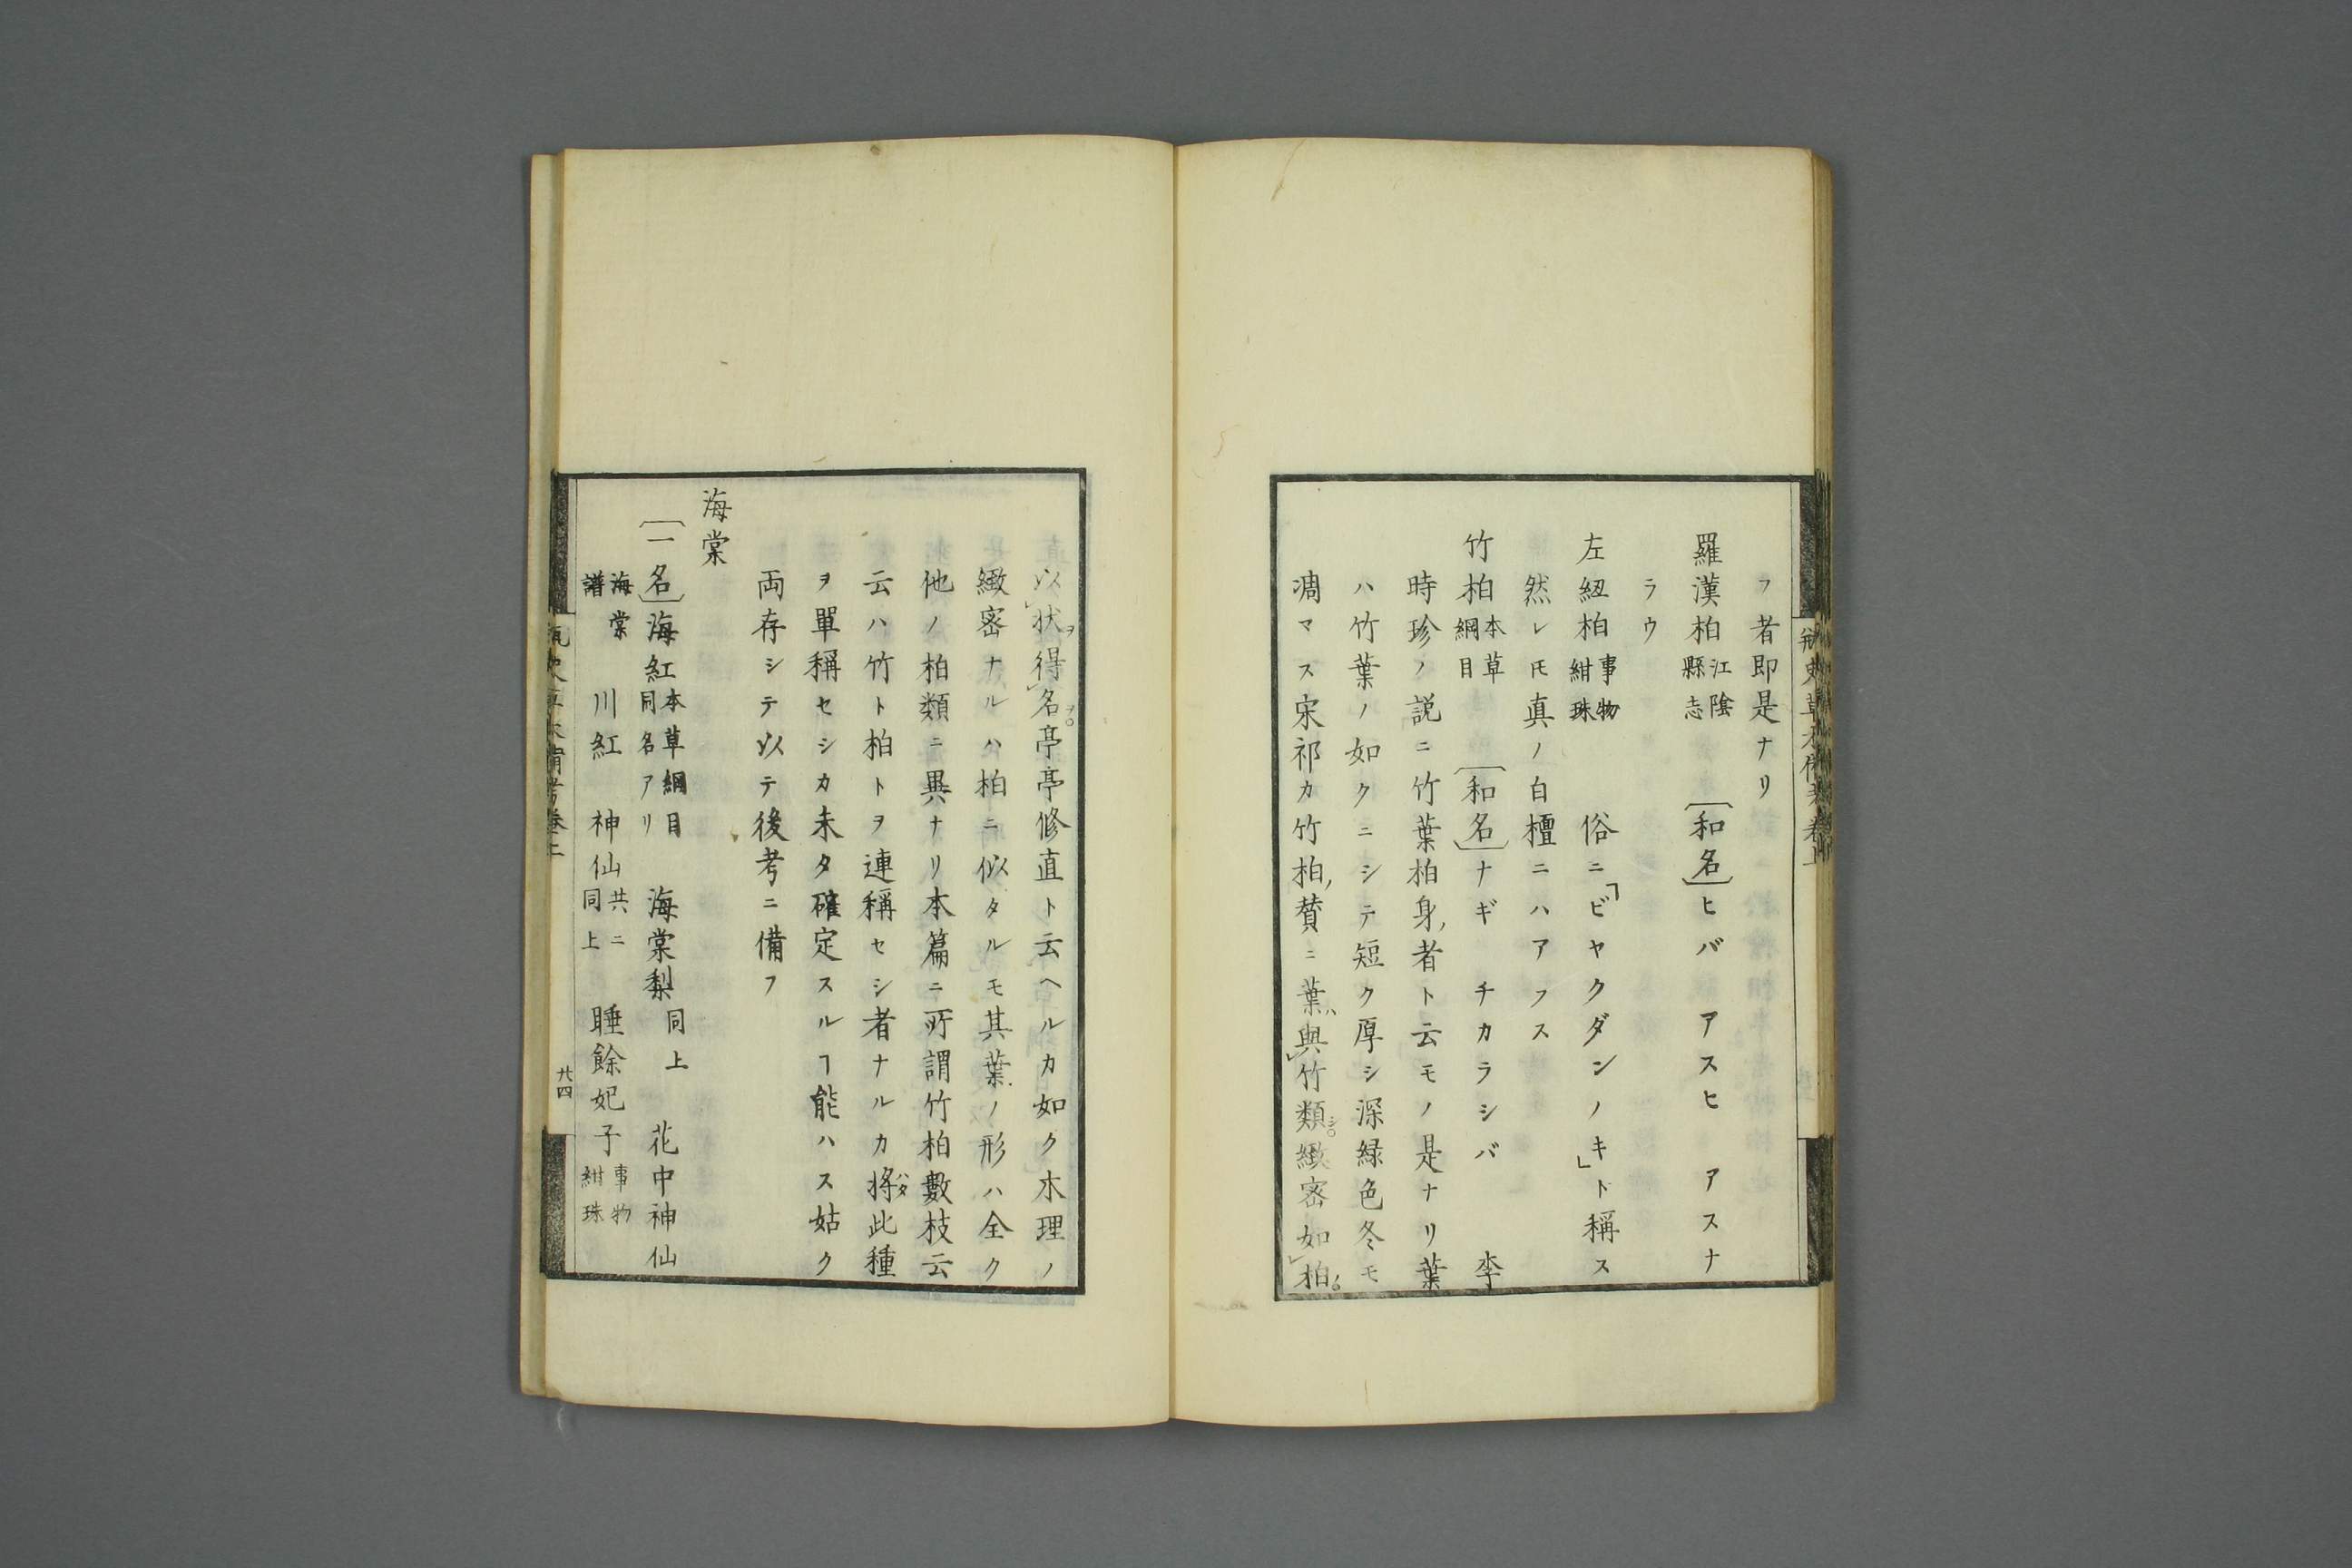 フ者即是ナリ
羅漢柏江陰縣志 〔和名〕ヒバ アスヒ アスナ
ラウ
左紐柏事物紺珠 俗ニ「ビヤクダンノキ」ト稱ス
然レ𪜈真ノ白檀ニハアラス
竹柏本草綱目 〔和名〕ナギ チカラシバ 李
時珍ノ説ニ竹葉柏身ノ者ト云モノ是ナリ葉
ハ竹葉ノ如クニシテ短ク厚シ深緑色冬モ
凋マス宋祁カ竹柏ノ賛ニ葉ハ與レ竹類シ。緻密如レ柏ノ。
以レ状ヲ得レ名ヲ。亭亭修直ト云ヘルカ如ク木理ノ
緻密ナルハ柏ニ似タルモ其葉ノ形ハ全ク
他ノ柏類ニ異ナリ本篇ニ所謂竹柏數枝云
云ハ竹ト柏トヲ連稱セシ者ナルカ將ハタ此種
ヲ單稱セシカ未タ確定スルヿ能ハス姑ク
両存シテ以テ後考ニ備フ
海棠
〔一名〕海紅本草綱目同名アリ 海棠梨同上 花中神仙
海棠譜 川紅 神仙共ニ同上 睡餘妃子事物紺珠
廿四